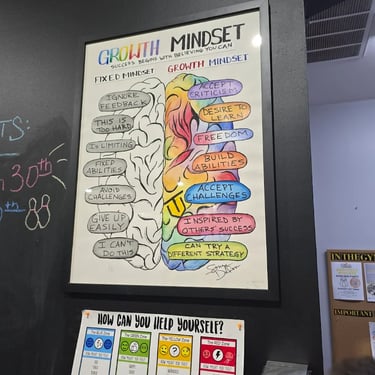 GROWTH MINDSET
SUCCESS BEGINS WITH BELIEVING YOU CAN
FIXED MINDSET
GROWTH MINDSET
IGNORE
FEEDBACK
THIS IS
TOO HARD
IS LIMITING
FIXED
ABILITIES
AVOID
CHALLENGES
GIVE UP
EASILY
I CAN'T
DO THIS
ACCEPT
CRITICISM
DESIRE TO
LEARN
FREEDOM
BUILD
ABILITIES
ACCEPT
CHALLENGES
INSPIRED BY
OTHERS' SUCCESS
CAN TRY A
DIFFERENT STRATEGY
TS:
30th
th
IN THE GY
IMPORTANT
HOW CAN YOU HELP YOURSELF?
The BLUE Zone
The GREEN Zone
The YELLOW Zone
The RED Zone